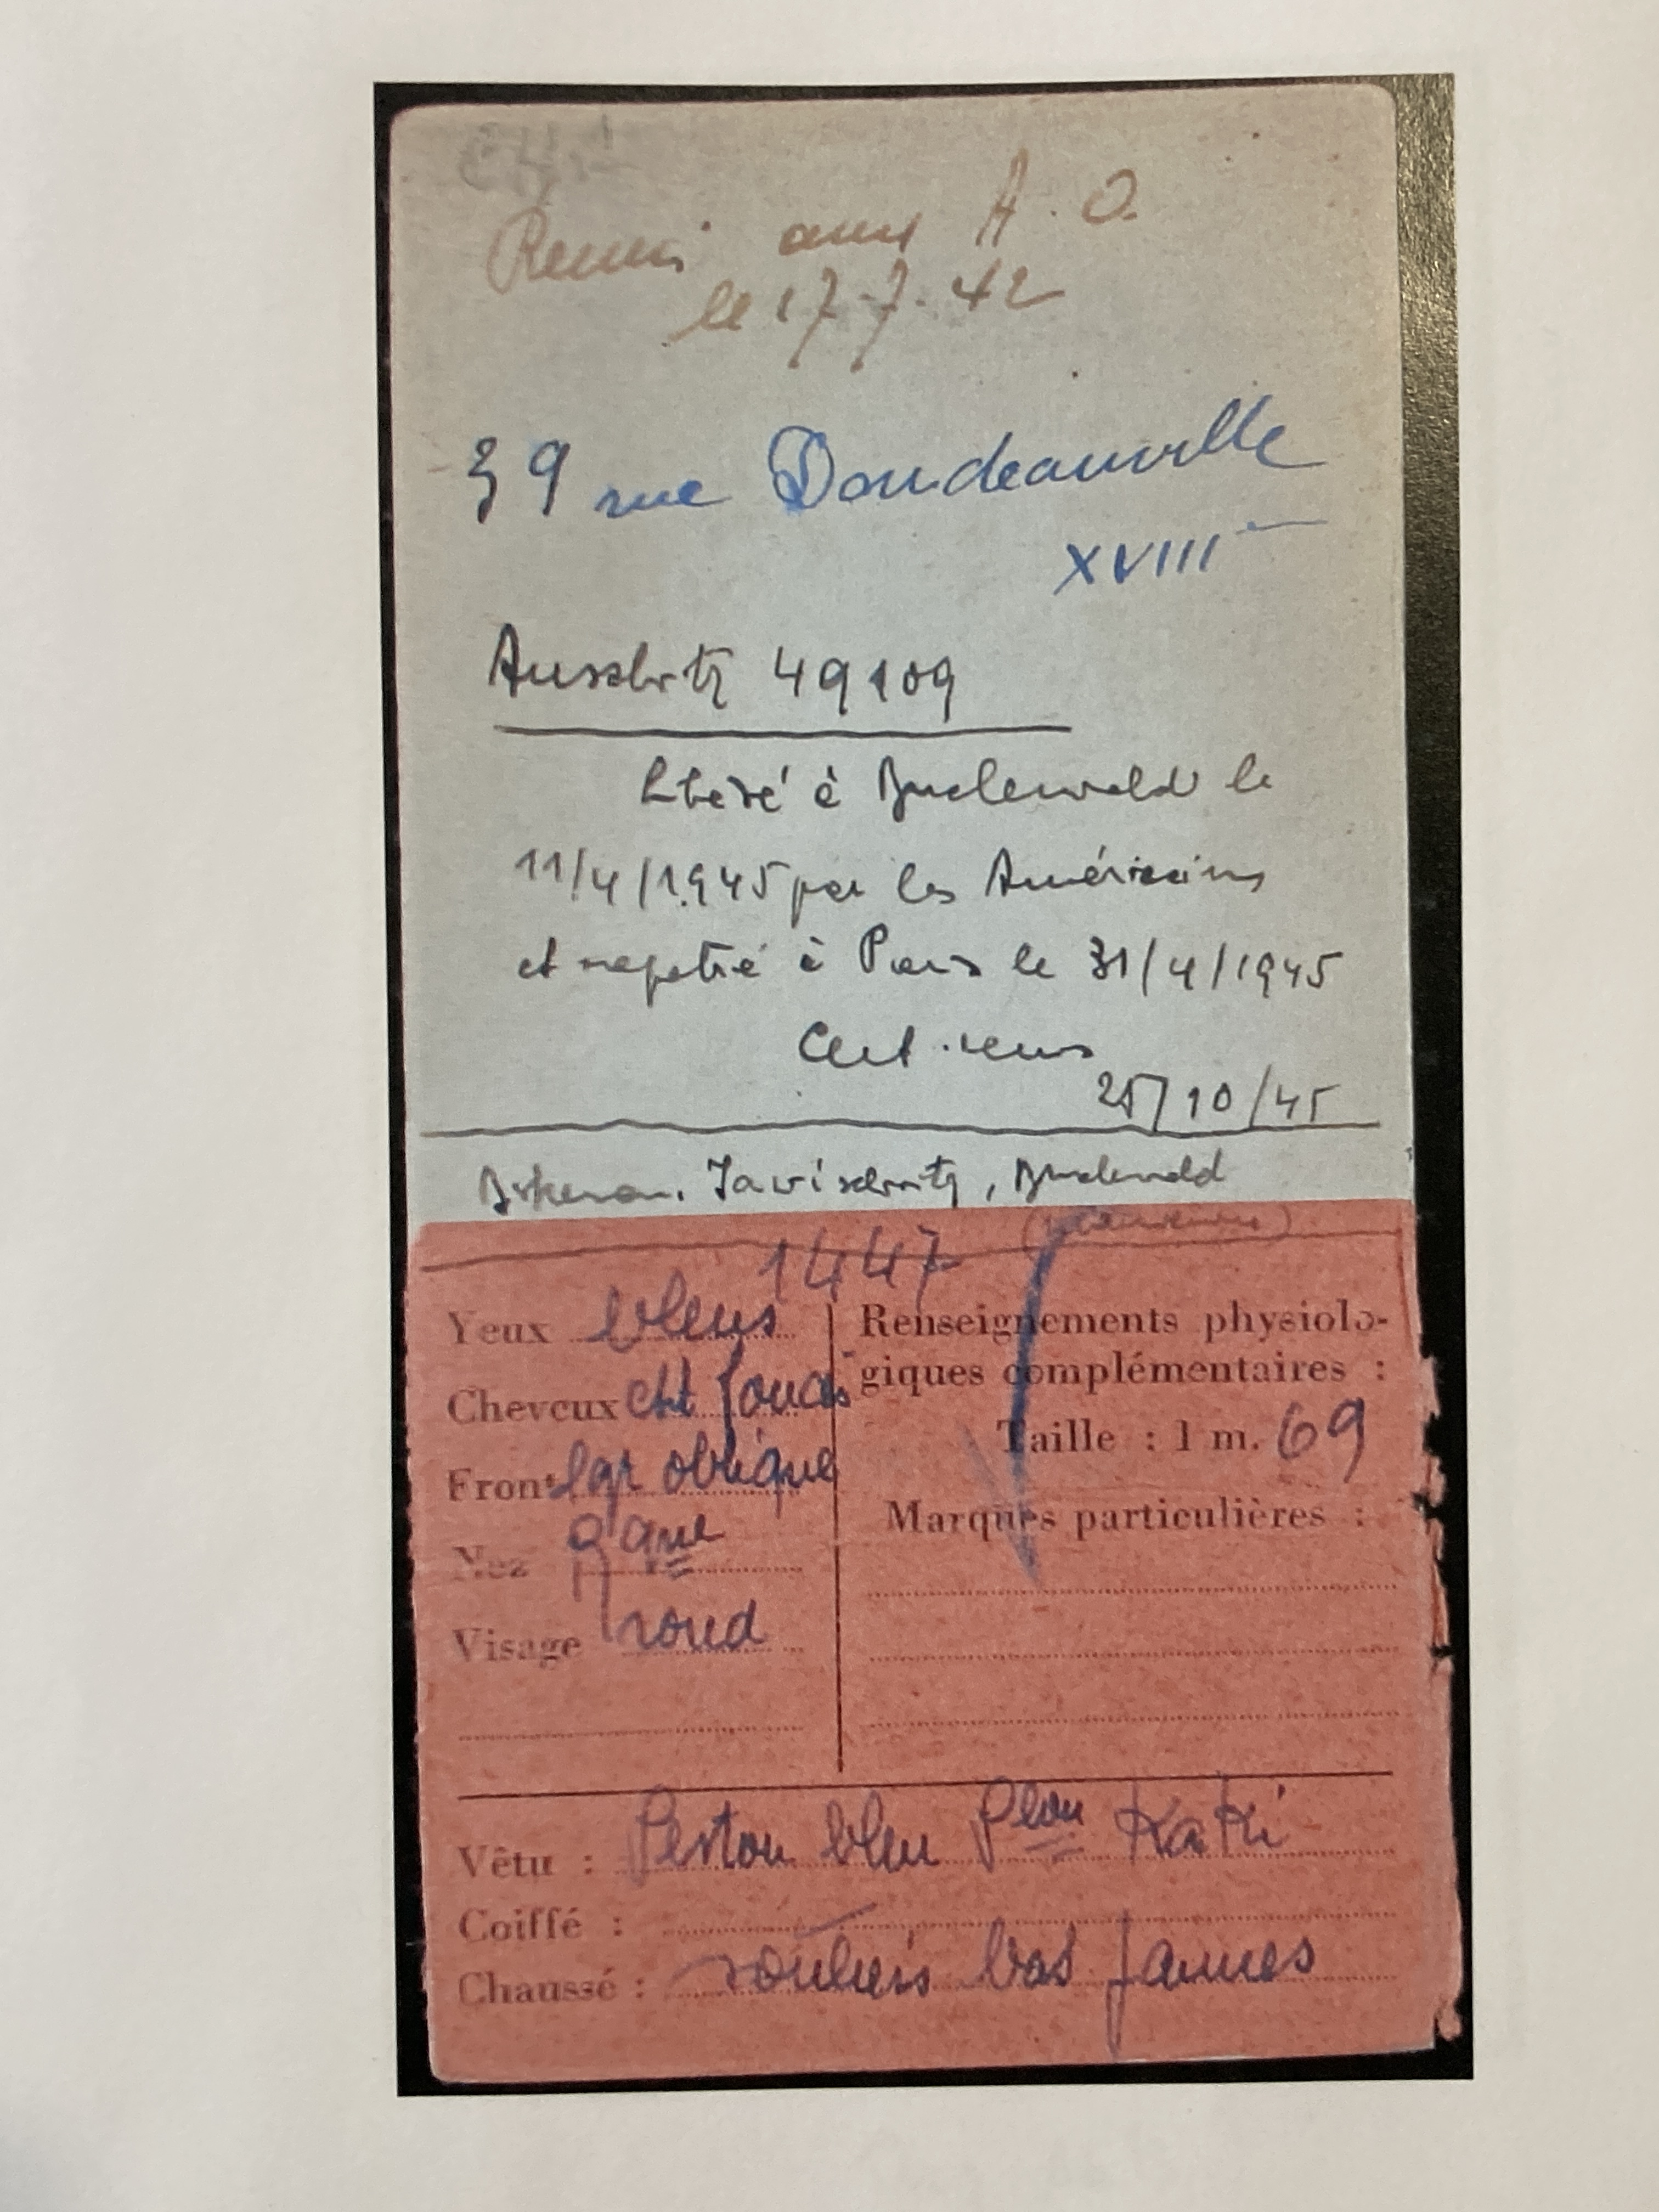 Remis aux A.O.
le 17.7.42
39 rue Doudeauville
XVIII
Auschwitz 49109
Libéré à Buchenwald le
11/4/1945 par les Américains
et rapatrié à Paris le 31/4/1945
Cert.
25/10/45
Birkenau, Jawischowitz, Buchenwald
1447
Yeux bleus
Cheveux cht foncés
Front lgr oblique
Nez
Visage rond
Renseignements physiolo-
giques complémentaires :
Taille : 1 m. 69
Marques particulières :
Vêtu : Veston bleu Plon Kaki
Coiffé : —
Chaussé : souliers bas jaunes